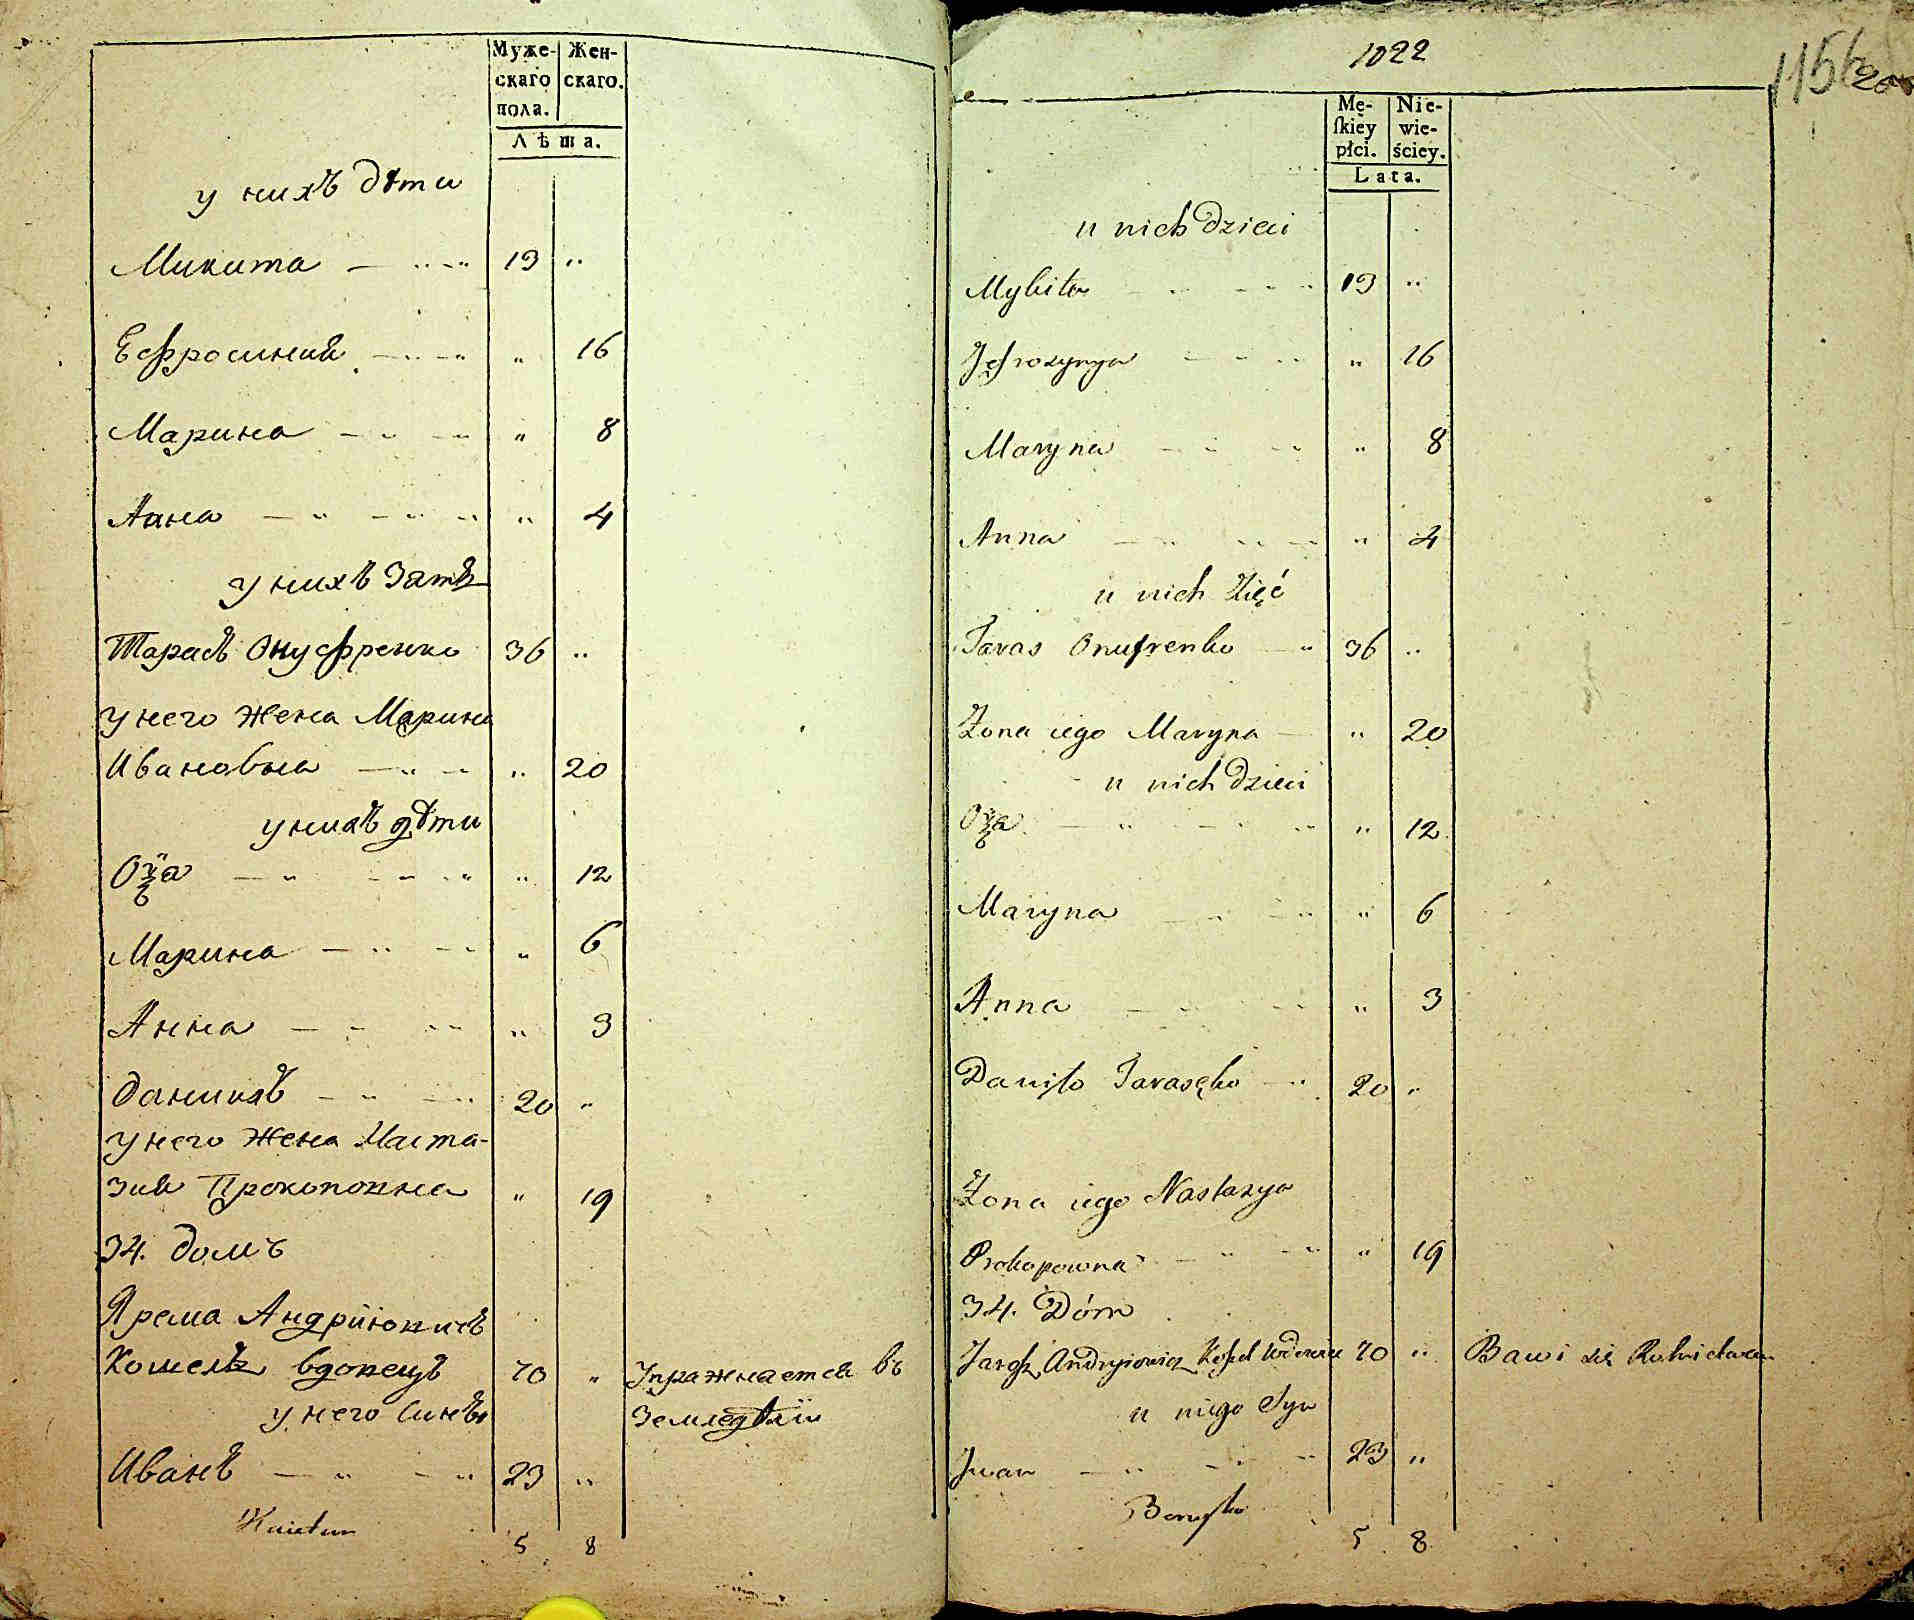 Муже- Жен-
скаго скаго.
пола.
Лѣта.
у нихъ дѣти
Микита 19 "
Ефросинія " 16
Марина " 8
Анна " 4
у нихъ Зять
Тарасъ Онуфренко 36 "
у него жена Марина
Ивановна " 20
у нихъ дѣти
" 12
Марина " 6
Анна " 3
Данилъ 20 "
у него жена Наста-
зия Прокоповна " 19
34. домъ
Ярема Андрііовичъ
Кошель вдовецъ 70 " Упражняется въ
у него Синъ Земледѣліи
Иванъ 23 "
5 8
1022
1156
Mę- Nie-
skiey wie-
płci. ściey.
Lata.
u nich dzieci
Mykita 19 "
Jefrozynya " 16
Maryna " 8
Anna " 4
u nich Zięć
Taras Onufrenko 36 "
Zona iego Maryna " 20
u nich dzieci
" 12
Maryna " 6
Anna " 3
Daniło Tarasęko 20 "
Zona iego Nastazya
Prokopowna " 19
34. Dóm
Andryiowicz Koszel Wdowiec 70 " Bawi się Rolnictwem
u niego Syn
Iwan 23 "
5 8